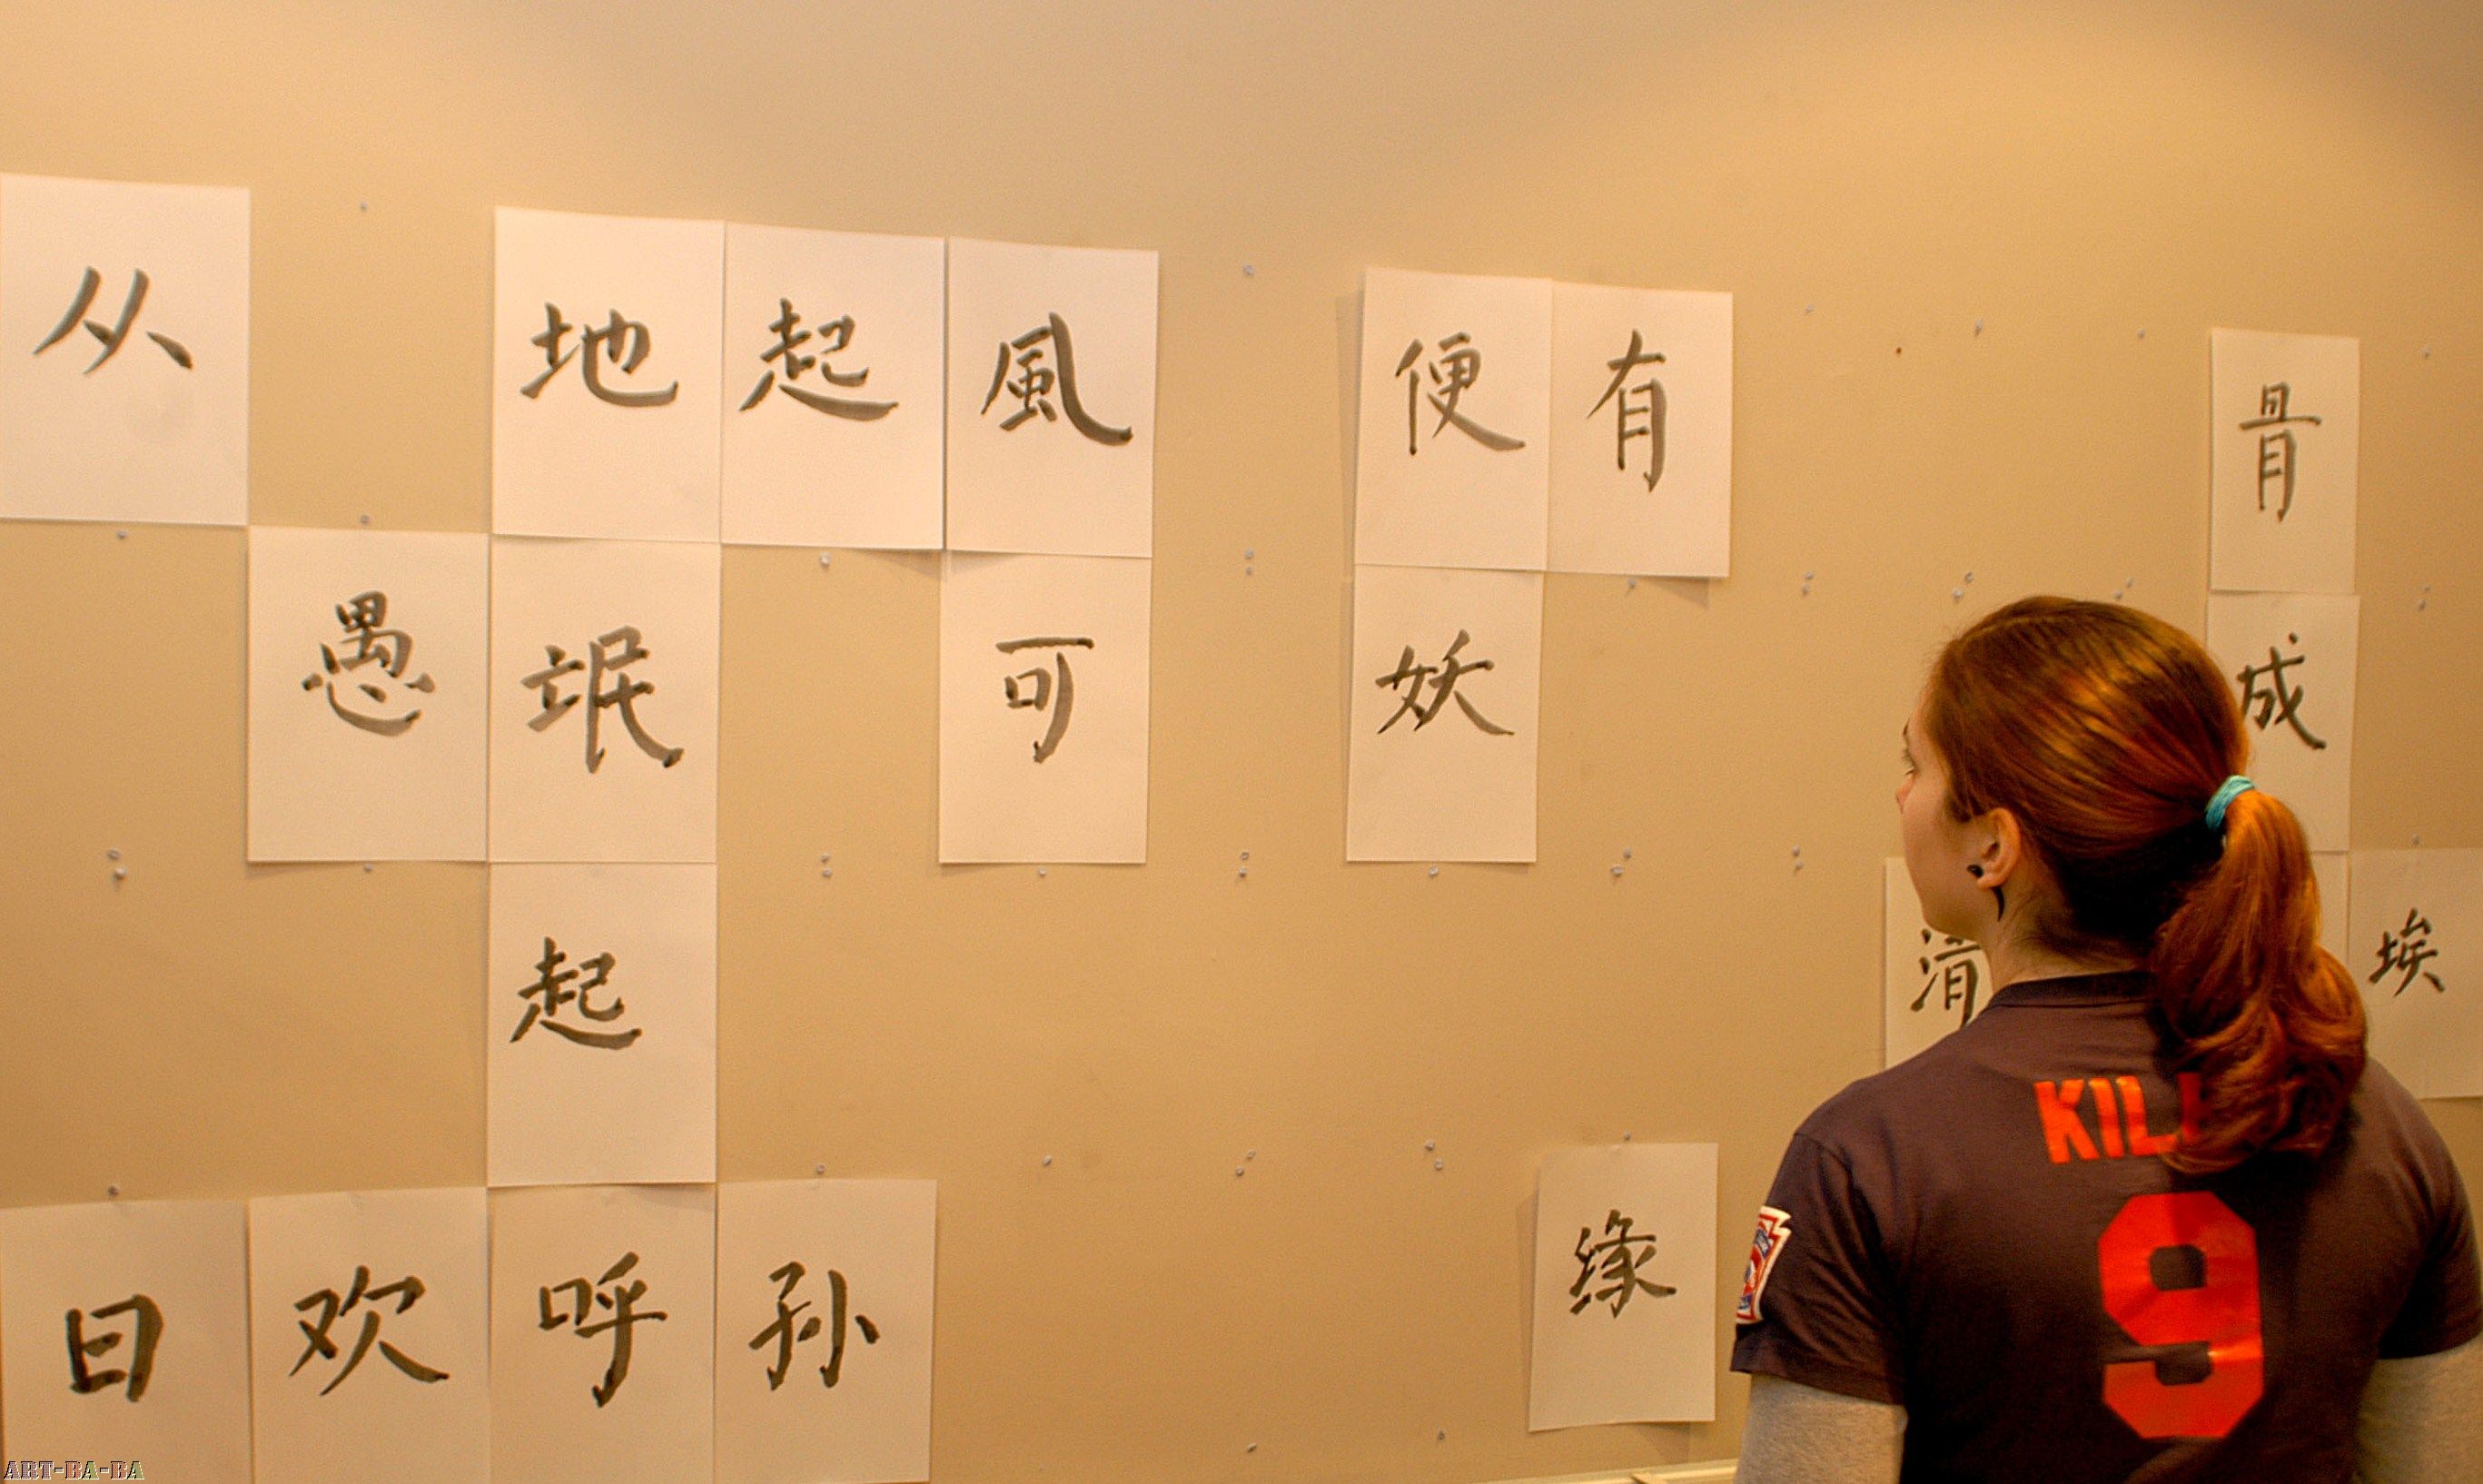 从 地起風 便有 骨
愚氓 可 妖 成
起 清 埃
日欢呼孙 缘
KILL
9
ART-BA-BA